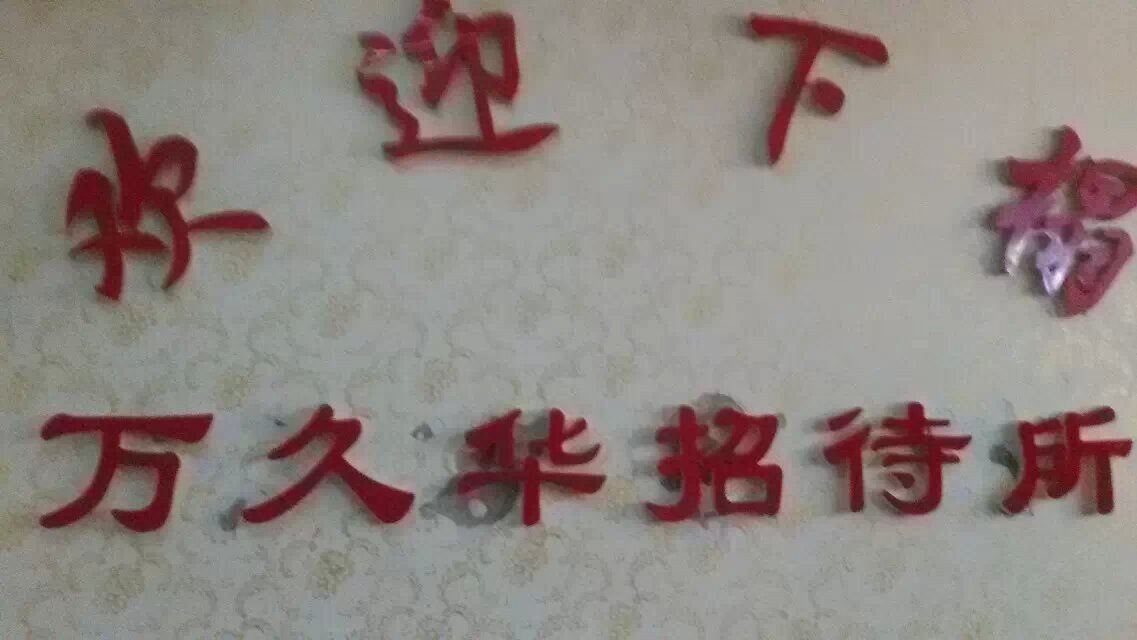 欢迎下榻
万久华招待所